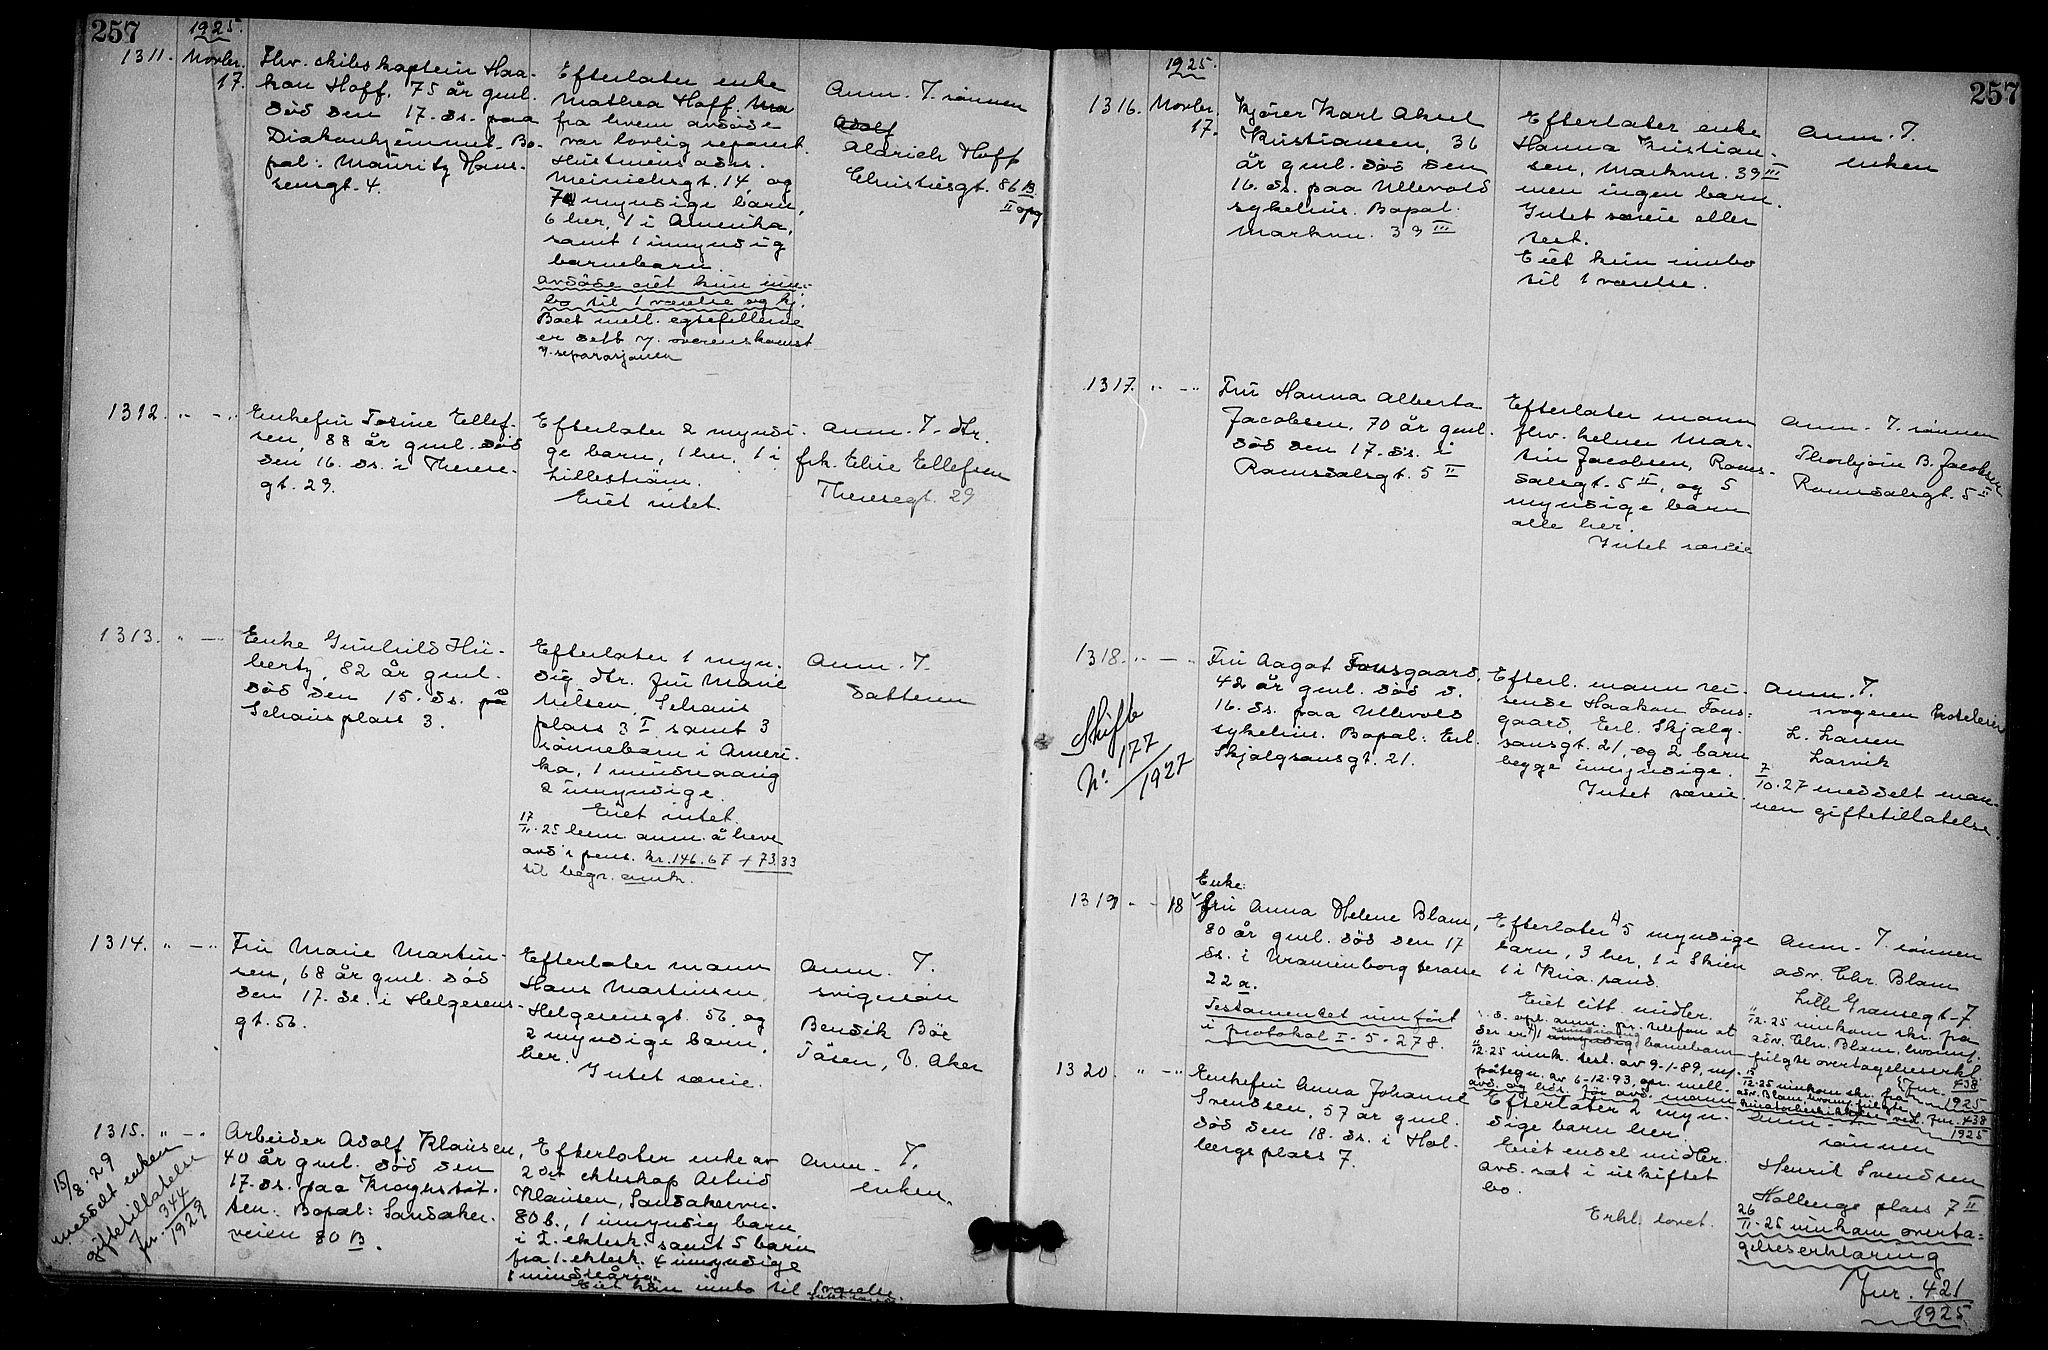 257
1925.
1311. Novbr. 17.
Fhv. skibskaptein Haa-
kon Hoff, 75 år gml.
død den 17. ds. paa
Diakonhjemmet. Bo-
pæl: Mauritz Han-
sensgt. 4.
Efterlater enke
Mathea Hoff.
fra hvem avdøde
var lovlig separert.
Hustruens adr.
Meinichsgt. 14, og
7 myndige barn,
6 her, 1 i Amerika,
samt 1 umyndig
barnebarn.
avdøde eiet kun inn-
bo til 1 værelse og kj.
Boet mell. egtefellerne
er delt v. overenskomst
v. separasjonen
Anm. T. sønnen
Adolf
Aldrich Hoff
Christiesgt. 86 B
II opg
1312. " — "
Enkefru Torine Ellef-
sen, 88 år gml. død
den 16. ds. i Therese-
gt. 29.
Efterlater 2 myndi-
ge barn, 1 her, 1 i
Lillestrøm.
Eiet intet.
Anm. T. dtr.
frk. Elise Ellefsen
Theresegt. 29
1313. " — "
Enke Gunhild Hu-
bertz, 82 år gml.
død den 15. ds. på
Schous plass 3.
Efterlater 1 myn-
dig dtr. fru Marie
Nilsen, Schous
plass 3 I samt 3
sønnebarn i Ameri-
ka, 1 mindreaarig
2 umyndige.
Eiet intet.
17/11-25 bem. anm. å heve
avd's pens. kr. 146.67 + 73.33
til begr. omk.
Anm. T.
datteren
1314. " — "
Fru Marie Martin-
sen, 68 år gml. død
den 17. ds. i Helgesens-
gt. 56.
Efterlater mann
Hans Martinsen,
Helgesensgt. 56, og
2 myndige barn,
her.
Intet særeie.
Anm. T.
svigersøn
Bendik Bøe
Tåsen, V. Aker
1315. " — "
Arbeider Adolf Klausen,
40 år gml. død den
17. ds. paa Krohgstøt-
ten. Bopæl: Sandaker-
veien 80 B.
15/8-29
meddelt enken
giftetillatelse
Jnr. 344/1929
Efterlater enke av
2 det ekteskap Astrid
Klausen, Sandakervn.
80 b., 1 umyndig barn
i 2. ektesk. samt 5 barn
fra 1. ektesk. 4 umyndige
1 mindreårig.
Eiet kun innbo til 1 værelse.
Intet særeie
Anm. T.
enken.
257
1925.
1316. Novbr. 17.
Kjører Karl Aksel
Kristiansen, 36
år gml. død den
16. ds. paa Ullevold
sykehus. Bopæl:
Markvn. 39 III
Efterlater enke
Hanna Kristian-
sen, Markvn. 39 III
men ingen barn.
Intet særeie eller
test.
Eiet kun innbo
til 1 værelse.
Anm. T.
enken
1317. " — "
Fru Hanna Alberta
Jacobsen, 70 år gml.
død den 17. ds. i
Romsdalsgt. 5 II
Efterlater mann
fhv. kelner Mar-
tin Jacobsen, Roms-
dalsgt. 5 II, og 5
myndige barn
alle her.
Intet særeie
Anm. T. sønnen
Thorbjørn B. Jacobsen
Romsdalsgt. 5 II
1318. " — "
Fru Aagot Fonsgaard,
42 år gml. død d.
16. ds. paa Ullevold
sykehus. Bopæl: Erl.
Skjalgsønsgt. 21.
Skifte
Nr. 177/1927
Efterl. mann rei-
sende Haakon Fons-
gaard, Erl. Skjalg-
sønsgt. 21, og 2 barn
begge umyndige.
Intet særeie.
Anm. T.
svogeren hoteleier
L. Larsen
Larvik
7/10-27 meddelt man-
nen giftetillatelse
1319 - - 18
Enke:
fru Anna Helene Blom,
80 år gml. død den 17
ds. i Uranienborg terasse
22 a.
Testamentet innført
i protokol I-5-278.
Efterlater A) 5 myndige
barn, 3 her, 1 i Skien
1 i Kria.sand.
Eiet litt midler.
s. opl. anm. pr. telefon at
der er A) 1 umyndig barnebarn
11/12-25 innk. test. av 9-1-89, m/
påtegn. av 6-12-93, opr. mell.
avd. og hds. før avd. mann
Anm. T. sønnen
adv. Chr. Blom
Lille Grensegt. 7.
11/12-25 innkom skr. fra
adv. Chr. Blom, hvormf.
fulgte overtagelseserkl.
Jnr. 438/1925
15/12-25 innkom skr. fra
adv. Blom, hvormf. fulgte
ved. Jnr. 438/1925
1320. " — "
Enkefru Anna Johanne
Svendsen, 57 år gml.
død den 18. ds. i Hol-
bergs plass 7.
Efterlater 2 myn-
dige barn her.
Eiet endel midler.
avd. sat i uskiftet
bo.
Erkl. lovet.
Anm.
sønnen
Henrik Svendsen
Holbergs plass 7 II
26/11-25 innkom overta-
gelseserklæring
Jnr. 421/1925